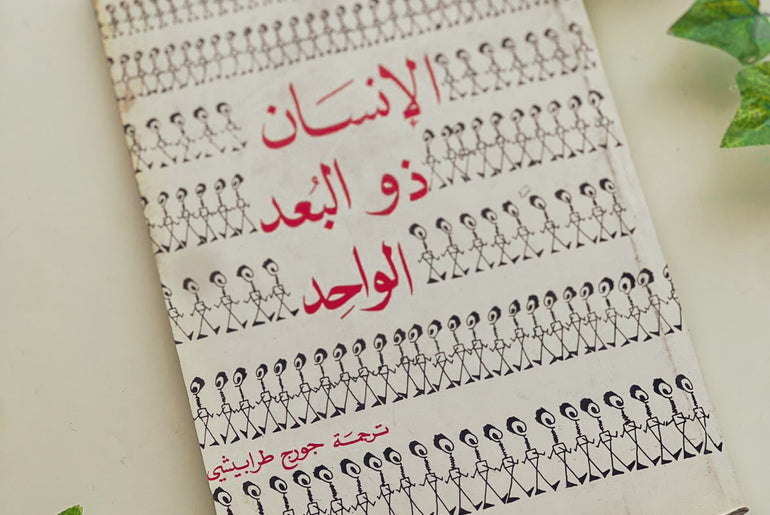 الإنسان
ذو البُعد
الواحِد
ترجمة جورج طرابيشي